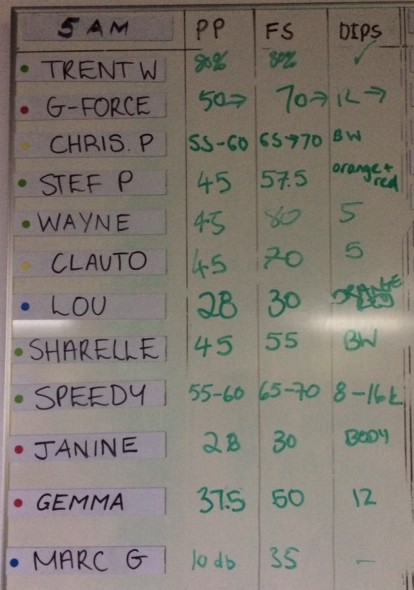 5 AM PP FS DIPS
TRENT W 80% 80% ✓
G-FORCE 50→ 70→ 12→
CHRIS. P 55-60 65→70 BW
STEF P 45 57.5 orange + red
WAYNE 45 80 5
CLAUTO 45 70 5
LOU 28 30 ORANGE
SHARELLE 45 55 BW
SPEEDY 55-60 65-70 8-16k
JANINE 28 30 BODY
GEMMA 37.5 50 12
MARC G 10 db 35 –